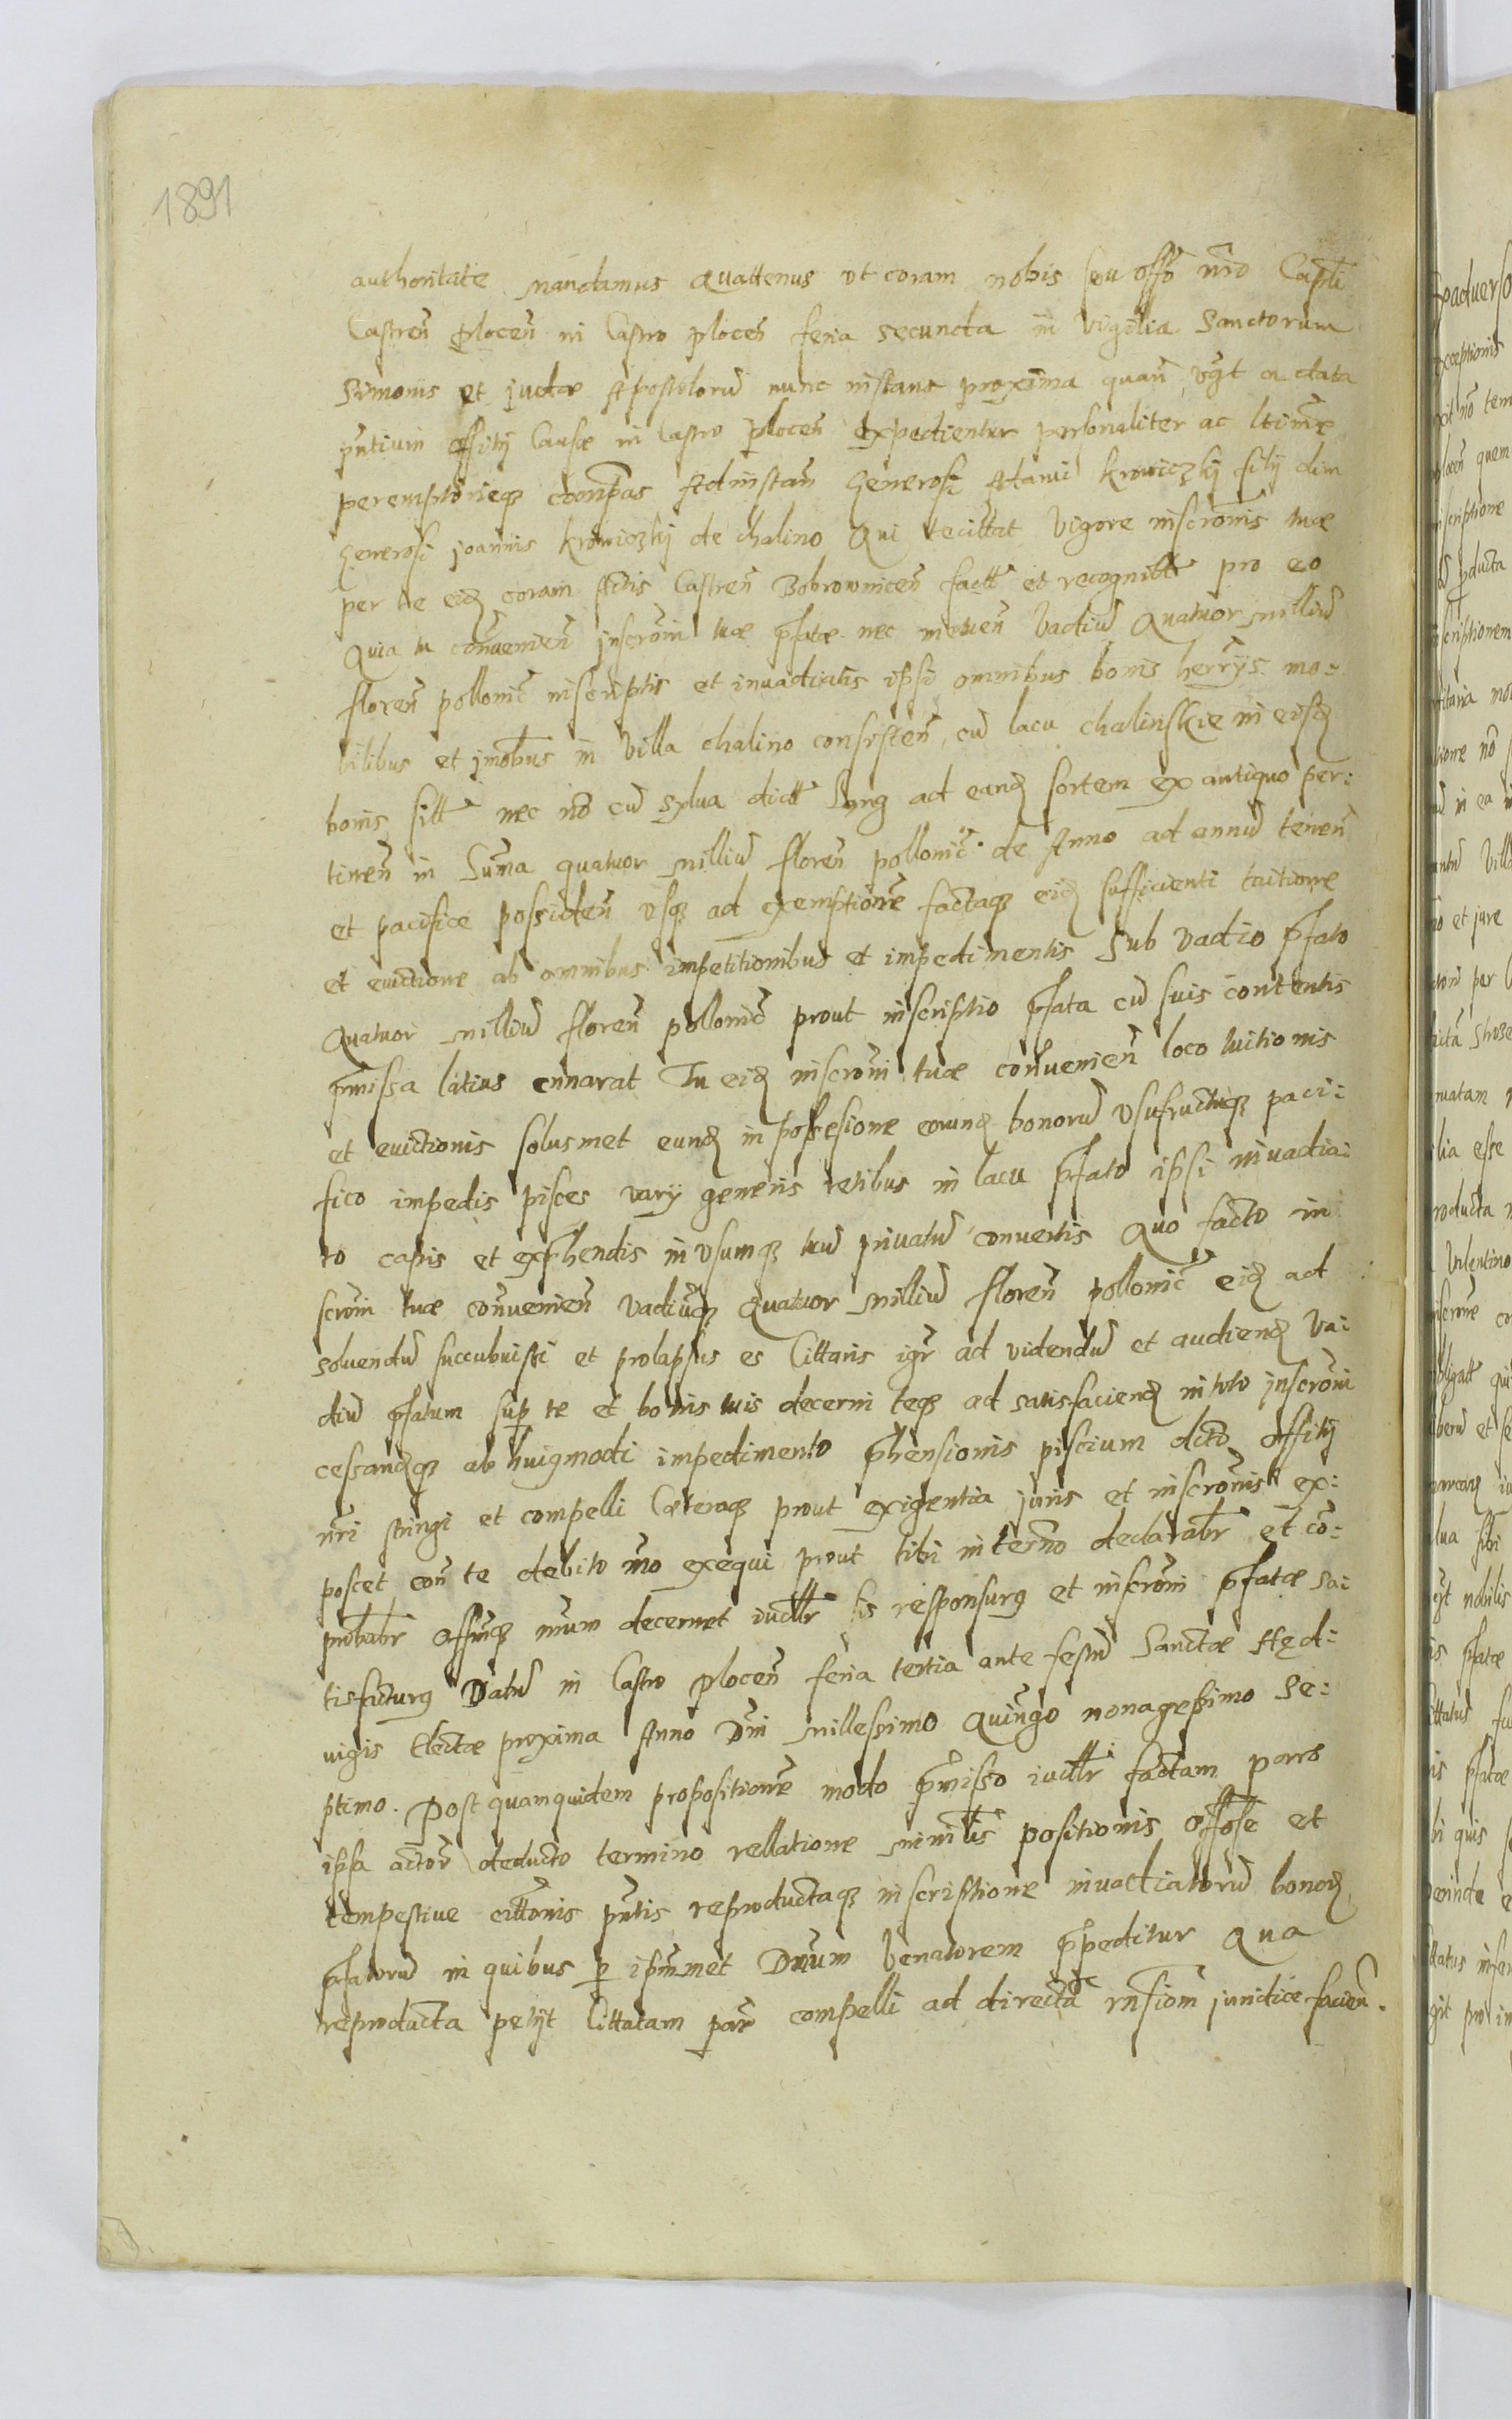 1891
authoritate mandamus Quattenus vt coram nobis seu offō nrō Capłi
Castreñ plocen̄ in Castro plocen̄ feria secunda in Vigilia Sanctorum
Simonis et judæ Apostolorū nunc instans proxima quan̄ vgit a data
pntium offitij Causæ in Castro plocen̄ expedientur personaliter ac ltime
peremptorieqз compas Ad instan̄ Generosi Adami krowiczkij filij olim
Generosi joannis krowiczkij de chalino Qui te cittat Vigore inscronis tuæ
per te eidз coram Actis Castren̄ Bobrownicen̄ factæ et recognittæ pro eo
Quia tu convenien̄ jnscroni tuæ pfatæ nec metuen̄ Vadiū Quatuor milliū
floren̄ pollonic̄ inscriptis et invadiatis ipsi omnibus bonis herrijs mo-
bilibus et jmobus in Villa chalino consisten̄, cū lacu chalinskie in eisdз
bonis sitt nec nō cū sylua dict Lug ad eandз sortem ex antiquo per:
tinen̄ in Suma quatuor milliū floren̄ pollonic̄ de Anno ad annū tenen̄
et pacifice possiden̄ vsqз ad exemptione factaqз eidз sufficienti tuitione
et euictione ab omnibus impetitionibus et impedimentis Sub vadio pfato
Quatuor milliū floren̄ pollonic̄ prout inscriptio pfata cū suis contentis
pmissa latius ennarat Tu eidз inscroni tuæ convenien̄ loco tuitionis
et euictionis solusmet eundз in possesione eorundз bonorū vsufructuqз paci:
fico impedis pisces varij generis retibus in lacu pfato ipsi invadia:
to capis et exphendis in vsumqз tuū priuatū convertis Quo facto in
scroni tuæ convenien̄ vadiuqз Quatuor milliū floren̄ pollonic̄ eidз ad
soluendū succubuisti et prolapsus es Cittaris igr ad videndū et audiendз Va:
diū pfatum sup te et bonis tuis decerni teqз ad satisfaciendз in toto jnscroni
cessandqз ab huiqmodi impedimento phensionis piscium dicto offitij
nri stringi et compelli Cæteraqз prout exigentia juris et inscronis ex:
poscet con te debito mo exequi prout tibi in terno declarabr et co:
probabr offmqз nrum decernet iudlr sis responsurg et inscroni pfatæ sa:
tisfacturg Datū in Castro plocen̄ feria tertia ante festū Sanctæ Hęd:
uigis Electæ proxima Anno Dni millessimo Quingo nonagessimo Se:
ptimo. Post quamquidem propositione modo pmisso iudlr factam pars
ipsa actor deducto termino rellatione minlis positionis offose et
tempestiue cittonis pntis reproductaqз inscriptione invadiatorū bonorз
pfatorū in quibus p ipmmet Dnum Venatorem ppeditur Qua
reproducta petijt Cittatam par compelli ad directā rnsiom juridice facien̄.